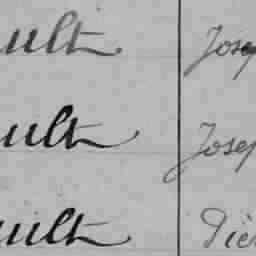 ault Jose
ault Josep
ault Pièr